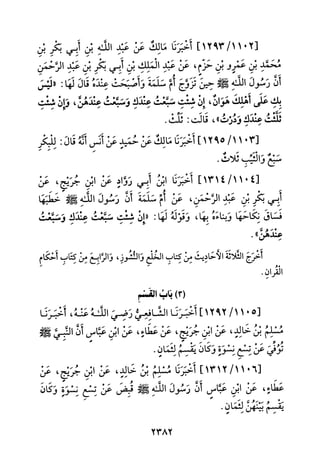 [١١٠٢/ ١٢٩٣] أَخْبَرَنَا مَالِكٌ عَنْ عَبْدِ اللَّهِ بْنِ أَبِي بَكْرِ بْنِ
مُحَمَّدِ بْنِ عَمْرِو بْنِ حَزْمٍ، عَنْ عَبْدِ المَلِكِ بْنِ أَبِي بَكْرِ بْنِ عَبْدِ الرَّحْمَنِ
أَنَّ رَسُولَ اللَّهِ ﷺ حِينَ تَزَوَّجَ أُمَّ سَلَمَةَ وَأَصْبَحَتْ عِنْدَهُ قَالَ لَهَا: «لَيْسَ
بِكِ عَلَى أَهْلِكِ هَوَانٌ، إِنْ شِئْتِ سَبَّعْتُ عِنْدَكِ وَسَبَّعْتُ عِنْدَهُنَّ، وَإِنْ شِئْتِ
ثَلَّثْتُ عِنْدَكِ وَدُرْتُ»، قَالَت: ثَلِّثْ.
[١١٠٣/ ١٢٩٥] أَخْبَرَنَا مَالِكٌ عَنْ حُمَيْدٍ عَنْ أَنَسٍ أَنَّهُ قَالَ: لِلْبِكْرِ
سَبْعٌ وَلِلثَّيِّبِ ثَلَاثٌ.
[١١٠٤/ ١٣١٤] أَخْبَرَنَا ابْنُ أَبِي رَوَّادٍ عَنْ ابْنِ جُرَيْجٍ، عَنْ
أَبِي بَكْرِ بْنِ عَبْدِ الرَّحْمَنِ، عَنْ أُمِّ سَلَمَةَ أَنَّ رَسُولَ اللَّهِ ﷺ خَطَبَهَا
فَسَاقَ نِكَاحَهَا وَبِنَاءَهُ بِهَا، وَقَوْلَهُ لَهَا: «إِنْ شِئْتِ سَبَّعْتُ عِنْدَكِ وَسَبَّعْتُ
عِنْدَهُنَّ».
أَخْرَجَ الثَّلَاثَةَ الأَحَادِيثَ مِنْ كِتَابِ الخُلْعِ وَالنُّشُوزِ، وَالرَّابِعَ مِنْ كِتَابِ أَحْكَامِ
القُرْآنِ.
(٣) بَابُ القَسْمِ
[١١٠٥/ ١٢٩٢] أَخْبَرَنَا الشَّافِعِيُّ رَضِيَ اللَّهُ عَنْهُ، أَخْبَرَنَا
مُسْلِمُ بْنُ خَالِدٍ، عَنْ ابْنِ جُرَيْجٍ، عَنْ عَطَاءٍ، عَنْ ابْنِ عَبَّاسٍ أَنَّ النَّبِيَّ ﷺ
تُوُفِّيَ عَنْ تِسْعِ نِسْوَةٍ وَكَانَ يَقْسِمُ لِثَمَانٍ.
[١١٠٦/ ١٣١٢] أَخْبَرَنَا مُسْلِمُ بْنُ خَالِدٍ، عَنْ ابْنِ جُرَيْجٍ، عَنْ
عَطَاءٍ، عَنْ ابْنِ عَبَّاسٍ أَنَّ رَسُولَ اللَّهِ ﷺ قُبِضَ عَنْ تِسْعِ نِسْوَةٍ وَكَانَ
يَقْسِمُ بَيْنَهُنَّ لِثَمَانٍ.
٢٣٨٢